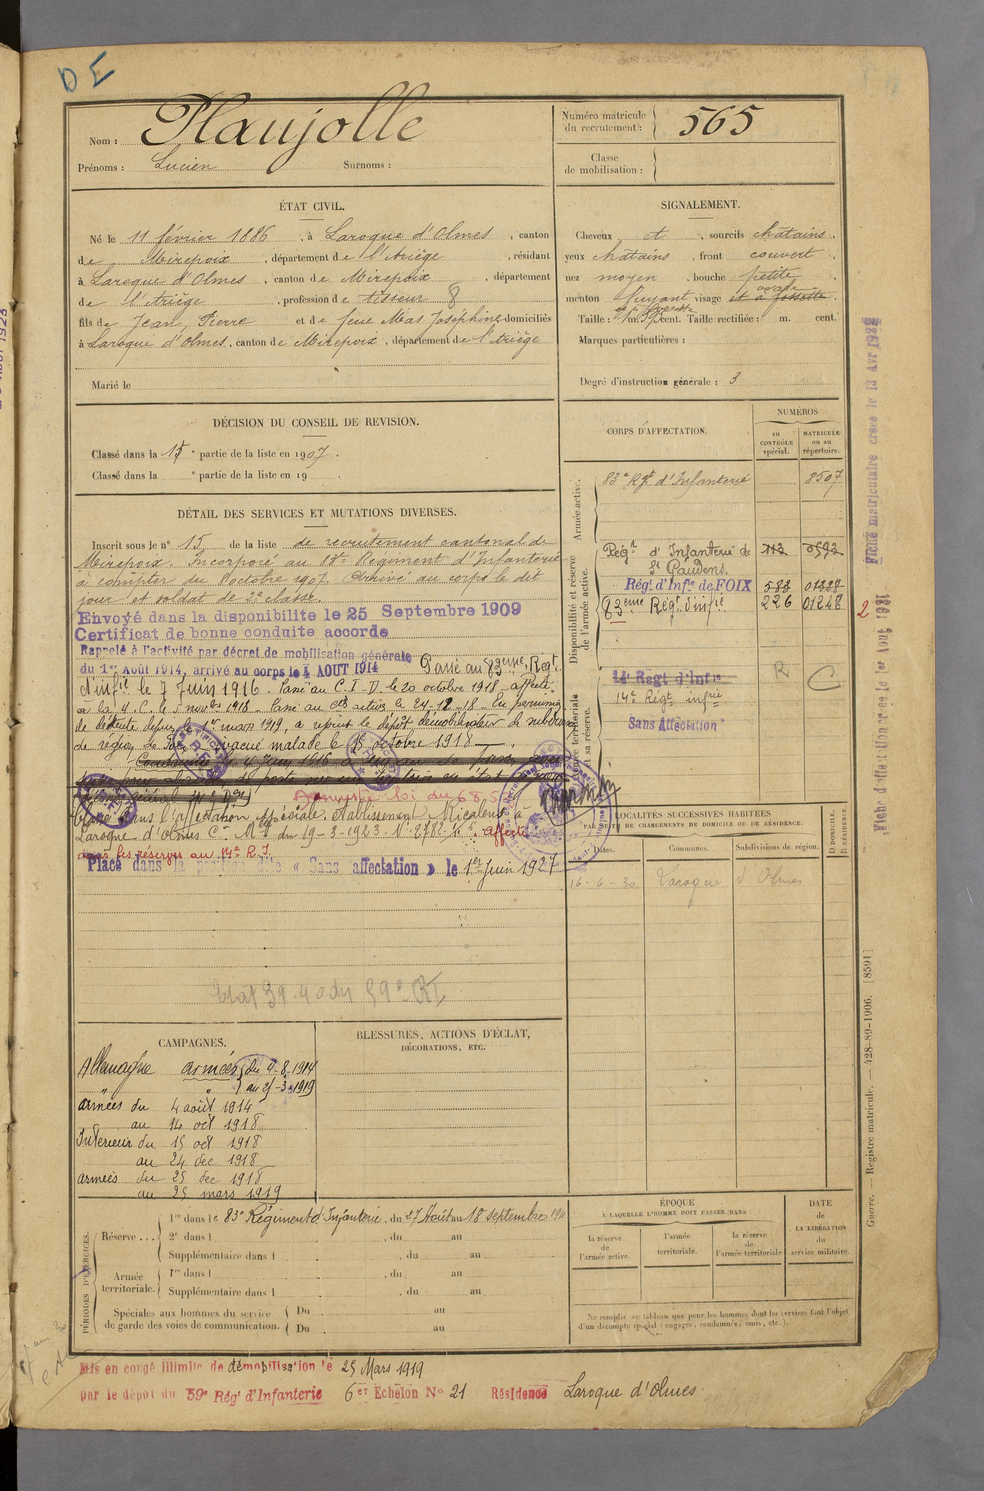 DE
Nom : Plaujolle
Prénoms : Lucien Surnoms :
Numéro matricule du recrutement : 565
Classe de mobilisation :
ÉTAT CIVIL.
Né le 11 février 1886, à Laroque d'Olmes, canton
de Mirepoix, département de l'Ariège, résidant
à Laroque d'Olmes, canton de Mirepoix, département
de l'Ariège, profession de tisseur 8
fils de Jean, Pierre et de feue Mas Joséphine domiciliés
à Laroque d'Olmes, canton de Mirepoix, département de l'Ariège
Marié le
SIGNALEMENT.
Cheveux et, sourcils châtains.
yeux châtains, front couvert
nez moyen, bouche petite
menton fuyant visage ovale
et à fossette
Taille : 1 m. cent. Taille rectifiée : m. cent.
Marques particulières :
Degré d'instruction générale : 3
DÉCISION DU CONSEIL DE REVISION.
Classé dans la 1e partie de la liste en 1907.
Classé dans la e partie de la liste en 19 .
DÉTAIL DES SERVICES ET MUTATIONS DIVERSES.
Inscrit sous le n° 15 de la liste de recrutement cantonal de
Mirepoix. Incorporé au 18e Régiment d'Infanterie
à compter du 8 octobre 1907. Arrivé au corps le dit
jour et soldat de 2e classe.
Envoyé dans la disponibilité le 25 Septembre 1909
Certificat de bonne conduite accordé
Rappelé à l'activité par décret de mobilisation générale
du 1er Août 1914, arrivé au corps le 4 AOUT 1914 Passé au 83eme Regt
d'infie le 7 Juin 1916. Passé au C.I.D. le 20 octobre 1918 affecté
à la 4. C. le 5 novbre 1918. Passé au actives le 24-12-18. En permission
de détente depuis le 1er mars 1919, a rejoint le dépôt démobilisateur de
de région de évacué malade le 15 octobre 1918
Amnistié loi du
Classé dans l'affectation spéciale. établissement Micalens à
Laroque d'Olmes Ce Mle du 19-3-1923 N° 2782 affecté
dans les réserves au 14e R.I.
Placé dans la position dite « Sans affectation » le 1er Juin 1927
Etat 39-40 du 59e RI
CORPS D'AFFECTATION.
NUMÉROS
au CONTRÔLE spécial.
MATRICULE ou au répertoire.
Armée active.
83e Rgt d'Infanterie 8507
Disponibilité et réserve de l'armée active.
Régt d'Infanterie de St Gaudens. 113 0592
Régt d'Infie de FOIX 583 01228
83eme Régt d'infie 226 01248
Armée territoriale et sa réserve.
14e Regt d'Infie R C
14e Régt infie
Sans Affectation
LOCALITÉS SUCCESSIVES HABITÉES
PAR SUITE DE CHANGEMENTS DE DOMICILE OU DE RÉSIDENCE.
Dates. Communes. Subdivisions de région. D. DOMICILE. R. RÉSIDENCE.
16-6-30 Laroque d'Olmes
CAMPAGNES.
Allemagne armées du 4-8-1914
" " au 25-3-1919
armées du 4 août 1914
au 14 oct 1918
Intérieur du 15 oct 1918
au 24 dec 1918
armées du 25 dec 1918
au 25 mars 1919
BLESSURES, ACTIONS D'ÉCLAT,
DÉCORATIONS, ETC.
PÉRIODES D'EXERCICES.
Réserve ...
1re dans le 83e Régiment d'Infanterie, du 27 Août au 18 septembre 1911
2e dans l , du au
Supplémentaire dans l , du au
Armée territoriale.
1re dans l , du au
Supplémentaire dans l , du au
Spéciales aux hommes du service de garde des voies de communication.
Du au
Du au
ÉPOQUE
À LAQUELLE L'HOMME DOIT PASSER DANS :
la réserve de l'armée active.
l'armée territoriale.
la réserve de l'armée territoriale
DATE de LA LIBÉRATION du service militaire.
Ne remplir ce tableau que pour les hommes dont les services font l'objet
d'un décompte spécial (engagés, condamnés, omis, etc.).
Mis en congé illimité de démobilisation le 25 Mars 1919
par le dépôt du 59e Régt d'Infanterie 6er Echelon No 21 Résidence Laroque d'Olmes
Fiche matriculaire créée le 13 Avr 1922
Fiche d'affectation créée le 1er Août 1921
2
Guerre. — Registre matricule. — 428-89-1906. [8591]